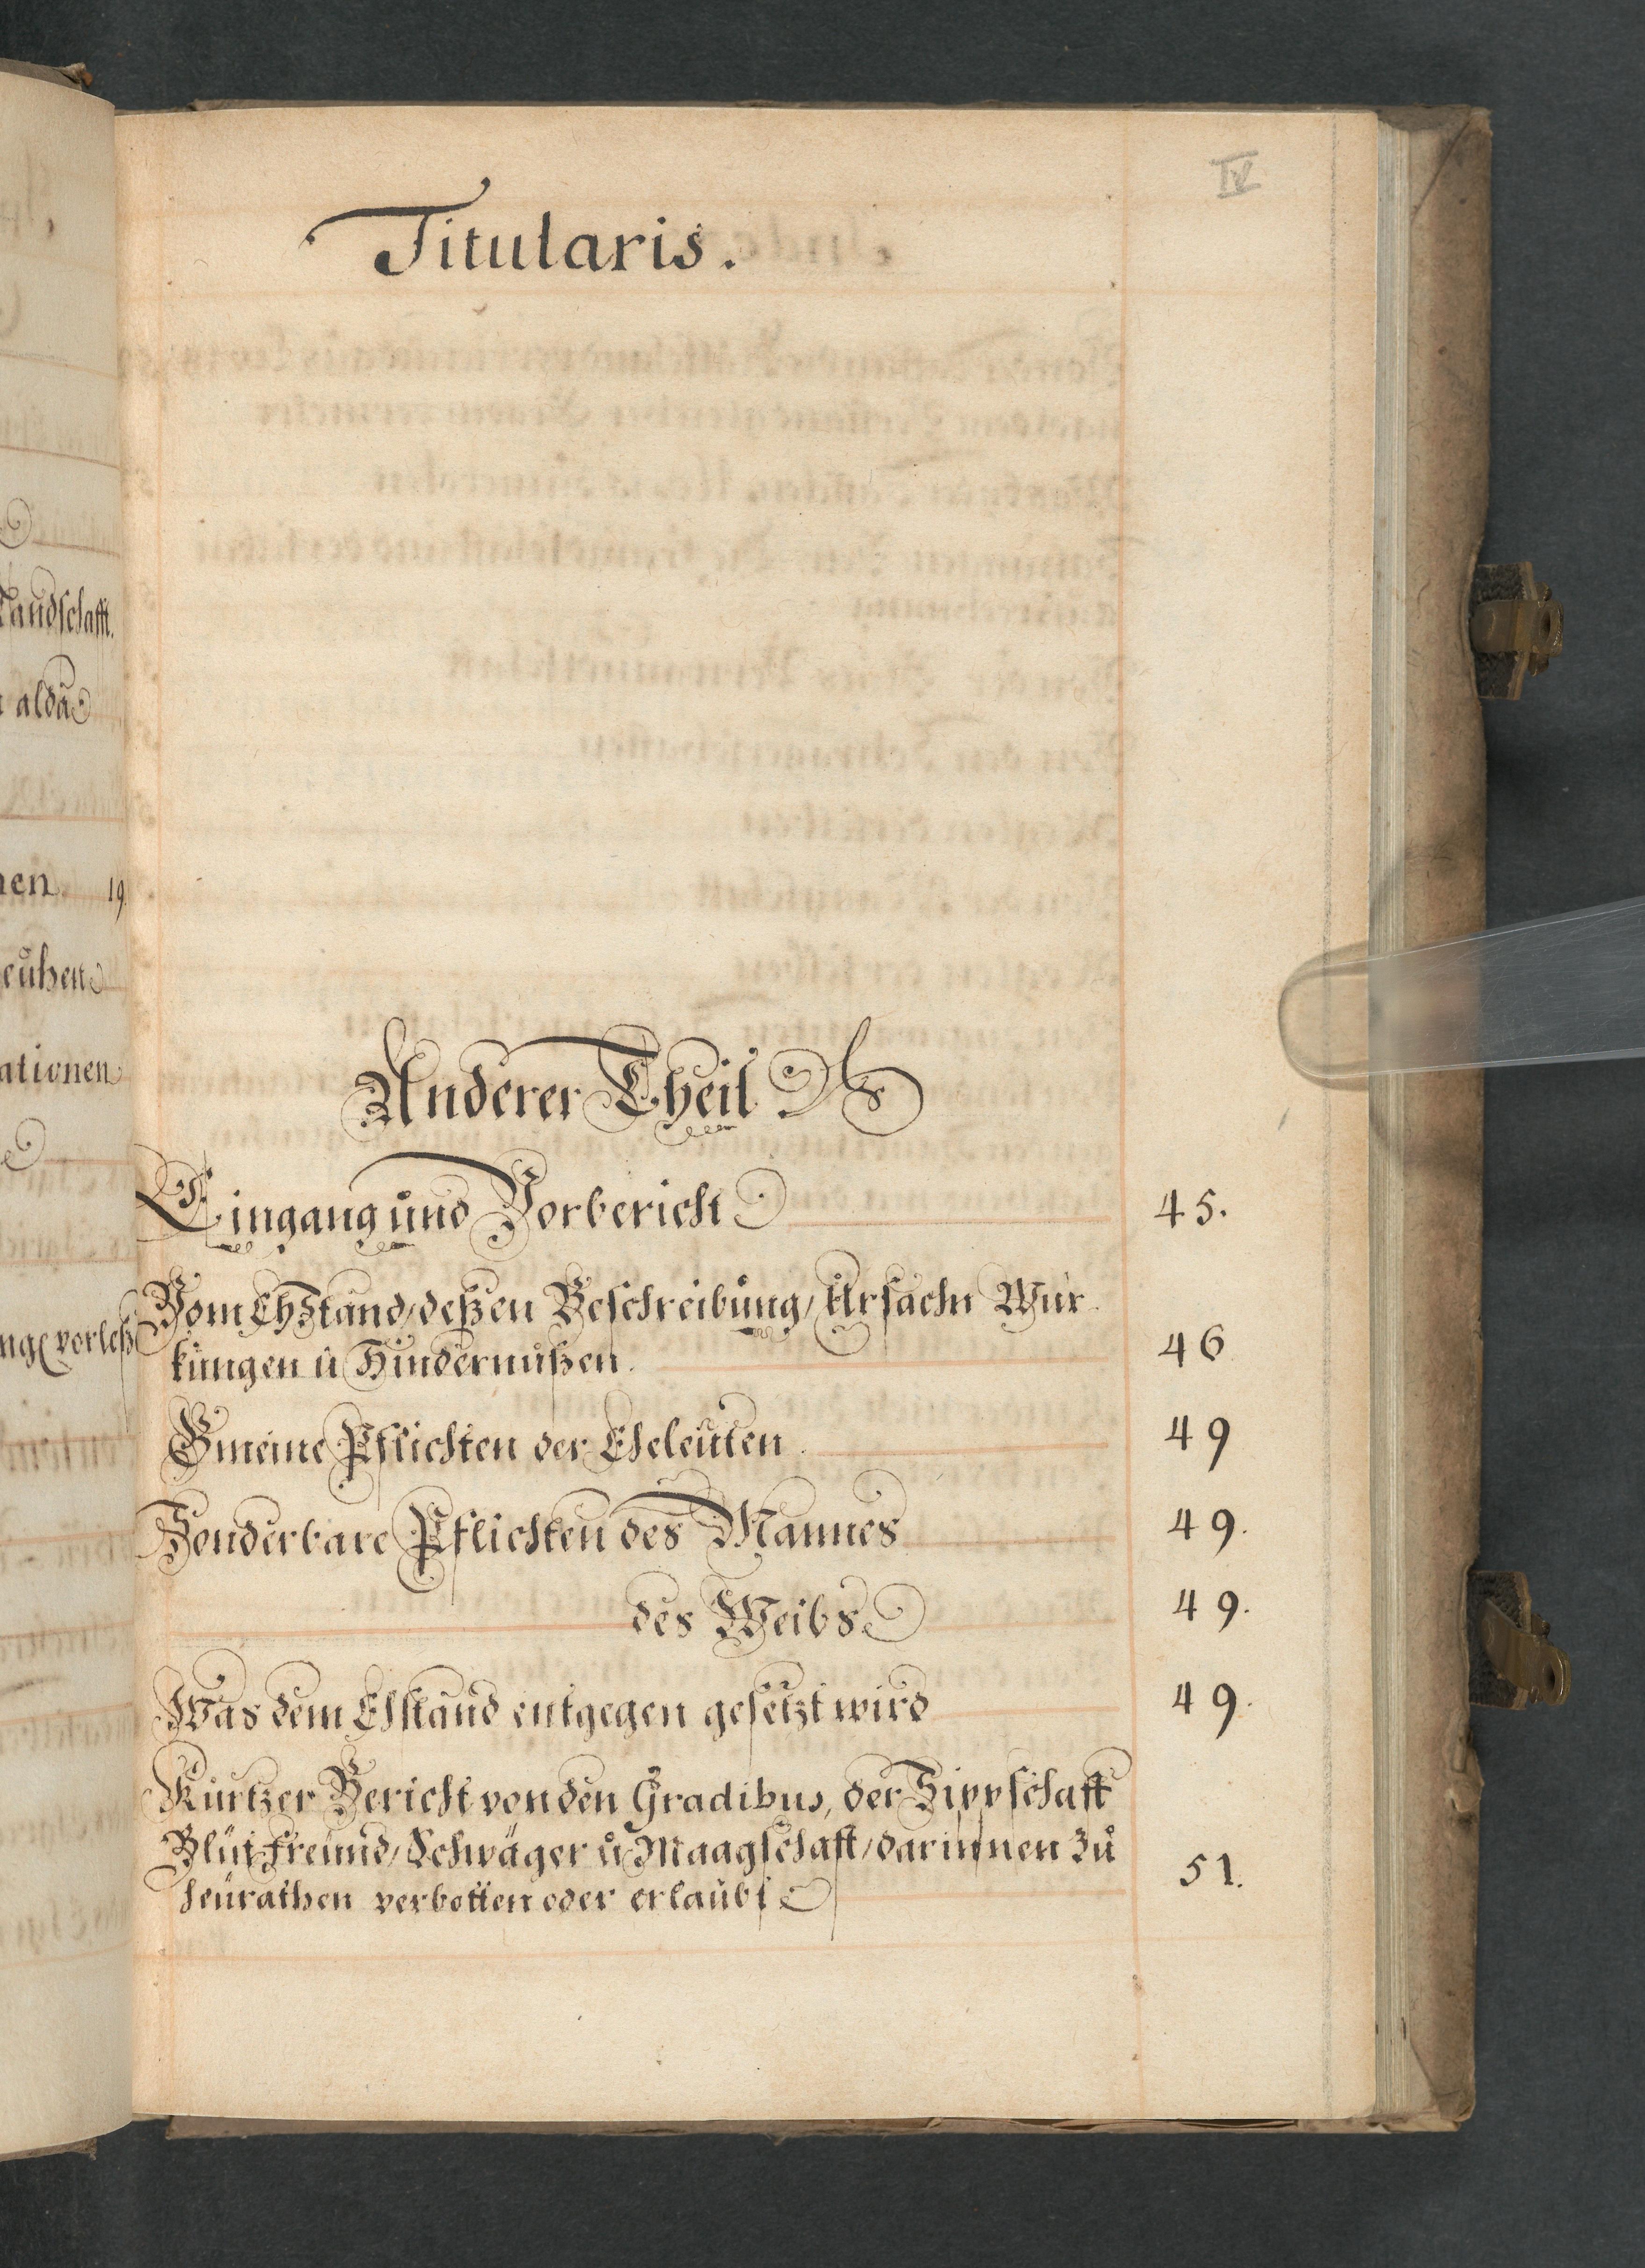 IV
Titularis.
Anderer Theil
Eingang und Vorbericht 45.
Vom Ehstand, deßen Beschreibung, Ursachn Wür-
kungen u Hindernußen. 46
Gmeine Pflichten der Eheleuten. 49
Sonderbare Pflichten des Mannes 49.
des Weibs 49.
Was dem Ehstand entgegen gesetzt wird 49.
Kurtzer Bericht von den Gradibus, der Sippschaft
Blutfreund, Schwäger u Maagschaft, darinnen zu
heurathen verbotten oder erlaubt 51.
Landschafft.
alda
nen 19.
euhen
ationen